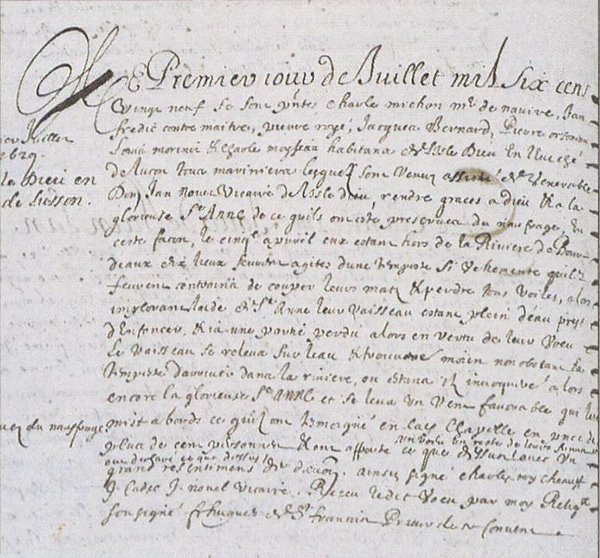 Le Premier iour de Juillet mil six cens
vingt neuf se sont pntes charle michon mre de navire, Jan
contre maitre, pierre roye, Jacques Bernard, Pierre
morini & charle moyseau habitans de Lisle Dieu En Leveché
de Lucon tous mariniers lesquels sont venus assisté de venerable
Don Jan nouel vicaire de lisle dieu, rendre graces a dieu & a la
glorieuse Ste Anne de ce quils ont esté preservez du naufrage, En
ceste facon, le cinqe apvril eux estant hors de la Riviere de Bour
deaux dix lieux furent agites dune tempeste si vehemente quilz
feurent contrains de couper leurs matz & perdre tous voiles, alors
implorant laide de Ste Anne leur vaisseau estant plein deau prest
d'Enfoncer, & ia une partie perdu alors en vertu de leur voeu
Le vaisseau se releva sur leau & non obstant la
tempeste dans la riviere, ou estant ilz invoquent alors
encore la glorieuse Ste ANNE et se leva un vent favorable qui les
mist a bords ce quilz ont temoigné en lad Chapelle en pnce de
plus de cent personnes & ont
grand resentiment de ainsi signé charles michon
J. nouel vicaire. Receu ledit voeu par moy Religx
soussigné f hugues de St francois Prieur de ce Convent
Juillet
1629.
Dieu en
de Lusson.
du naufrage